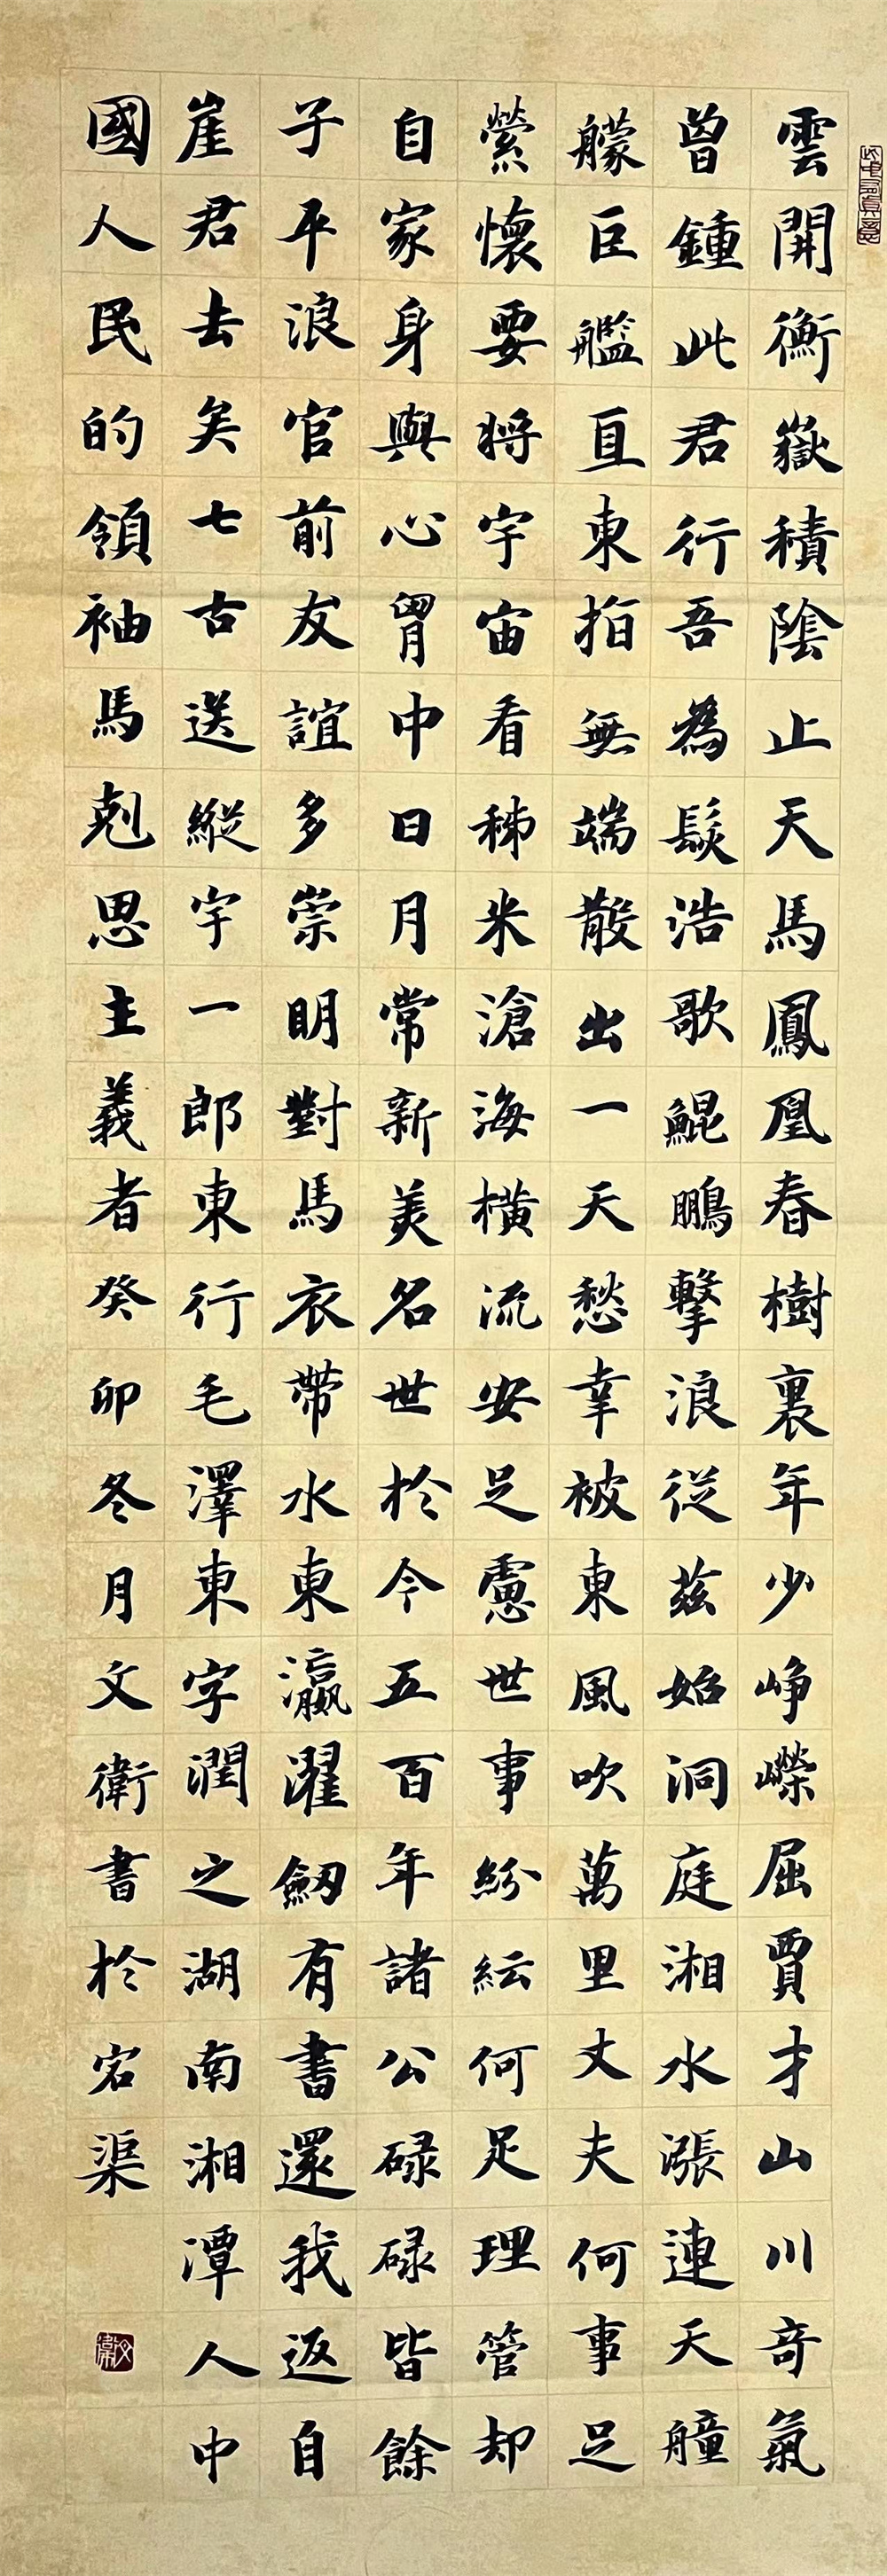 此中有真意
雲開衡嶽積陰止天馬鳳凰春樹裏年少崢嶸屈賈才山川奇氣
曾鍾此君行吾為鬆浩歌鯤鵬擊浪從茲始洞庭湘水漲連天艟
艨巨艦直東指無端散出一天愁幸被東風吹萬里丈夫何事足
縈懷要將宇宙看稊米滄海橫流安足慮世事紛紜何足理管却
自家身與心胷中日月常新美名世於今五百年諸公碌碌皆餘
子平浪宮前友誼多崇明對馬衣帶水東瀛濯劔有書還我返自
崖君去矣七古送縱宇一郎東行毛澤東字潤之湖南湘潭人中
國人民的領袖馬剋思主義者癸卯冬月文衛書於宕渠